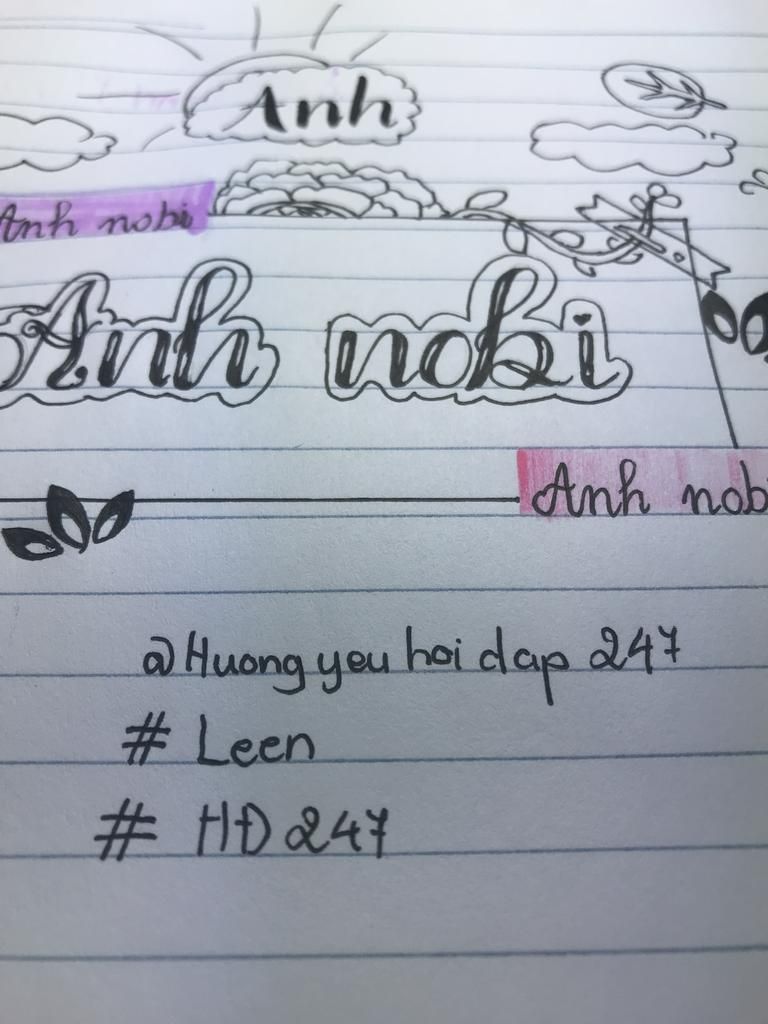 Anh
Anh nobi
Anh nobi
Anh nobi
@Huong yeu hoi dap 247
# Leen
# HĐ 247